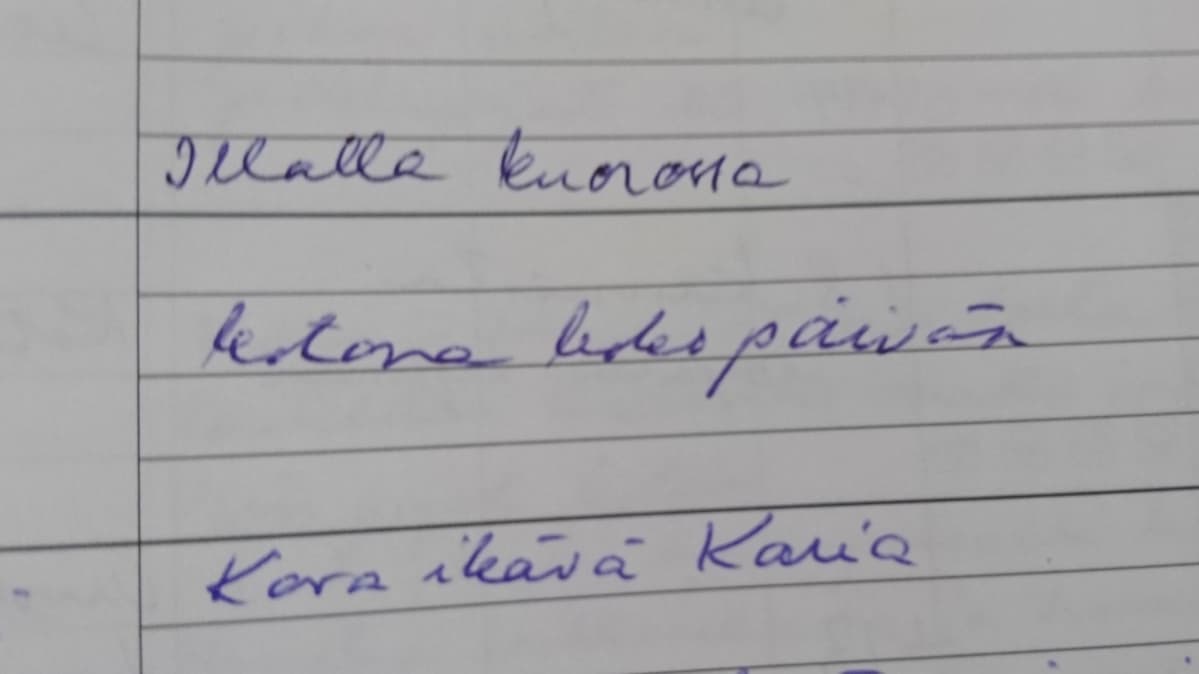 Illalla kuorossa
kotona koko päivän
Kova ikävä Karia